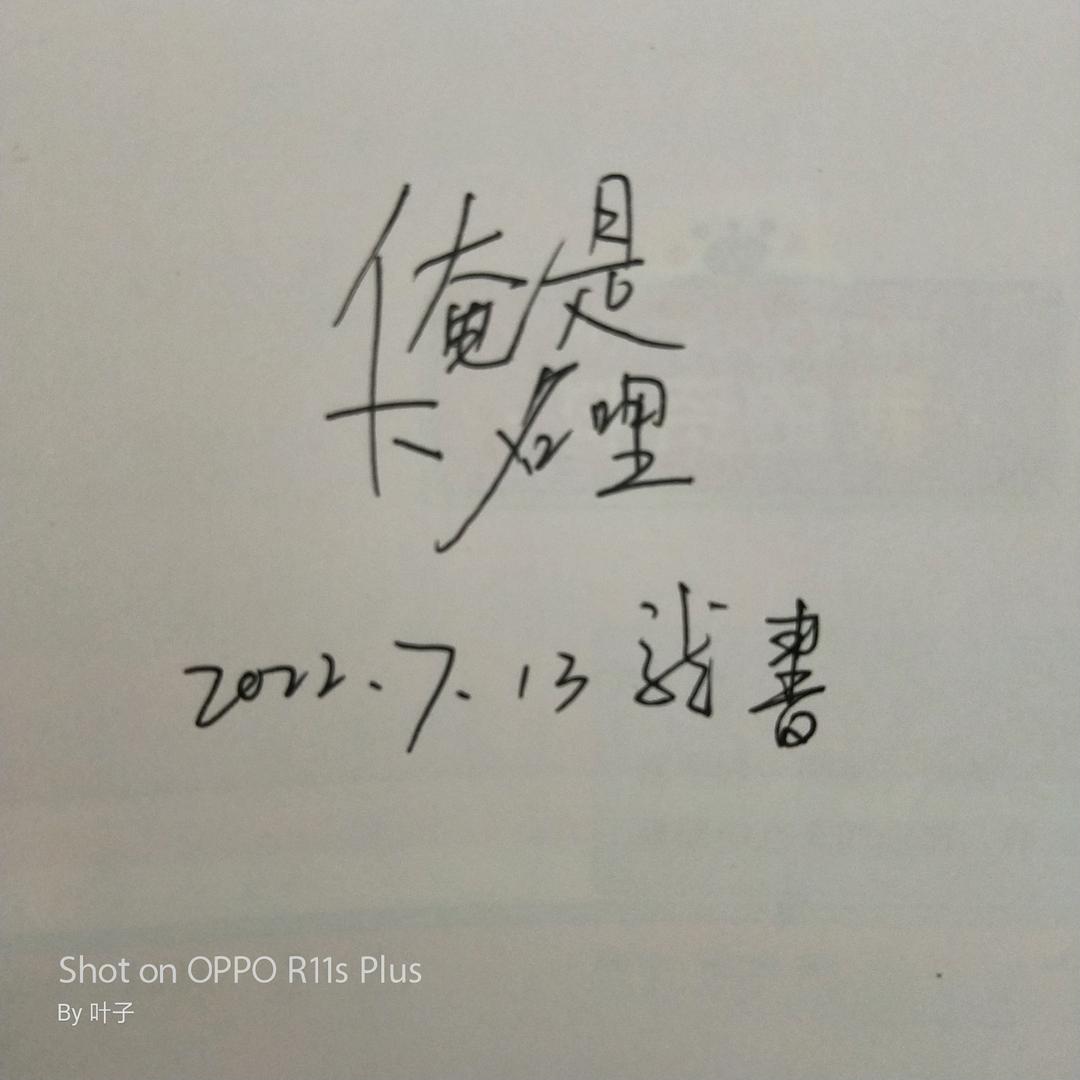 俺是
卡名哩
2022.7.13 書
Shot on OPPO R11s Plus
By 叶子